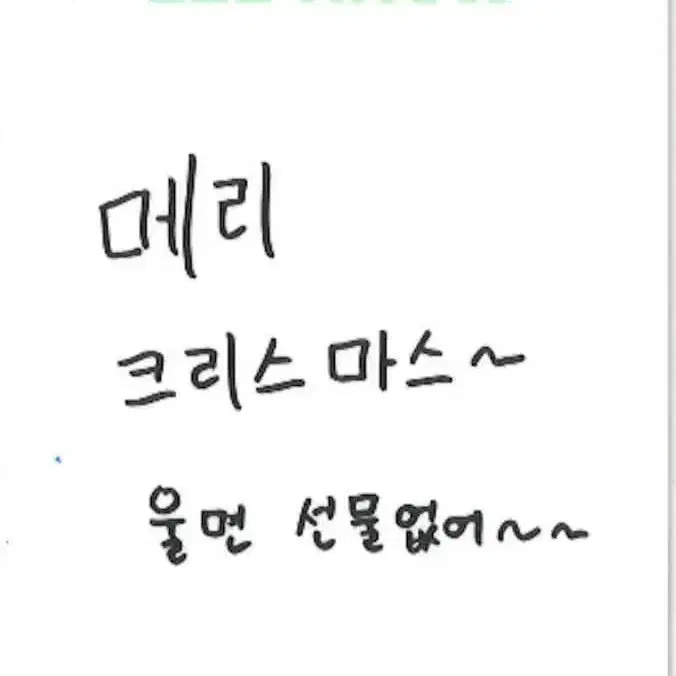 메리
크리스마스~
울면 선물없어~~